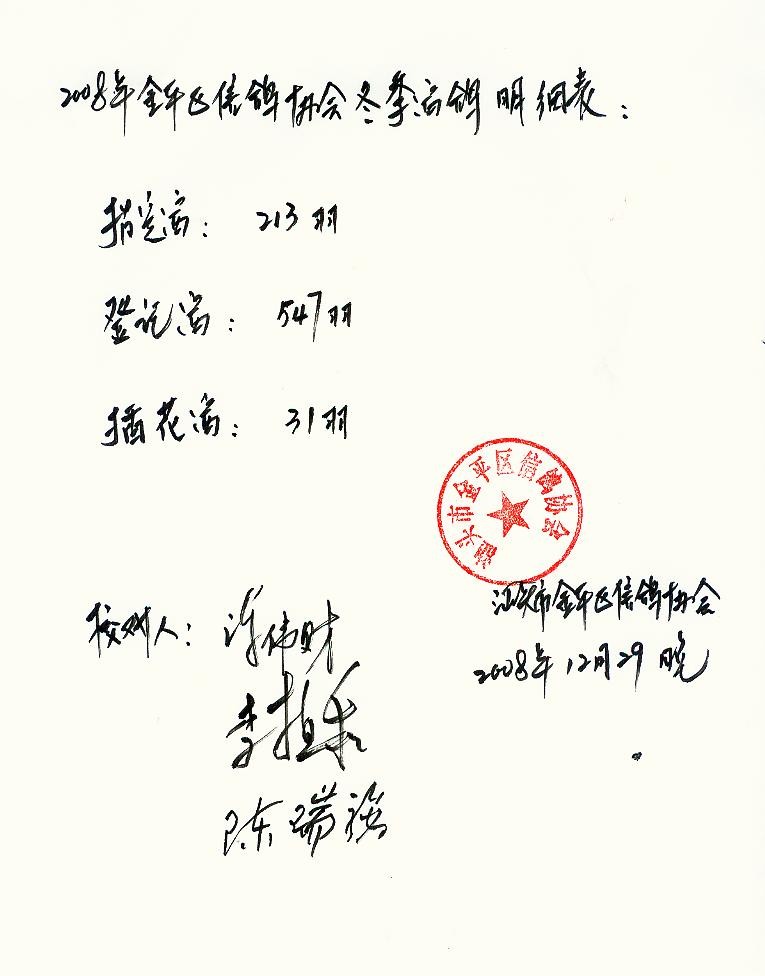 2008年金平区信鸽协会冬季 鸽明细表：
指定 ： 213羽
登记 ： 547羽
插花 ： 31羽
汕头市金平区信鸽协会
汕头市金平区信鸽协会
2008年12月29晚
校对人： 许伟财
李
陈瑞